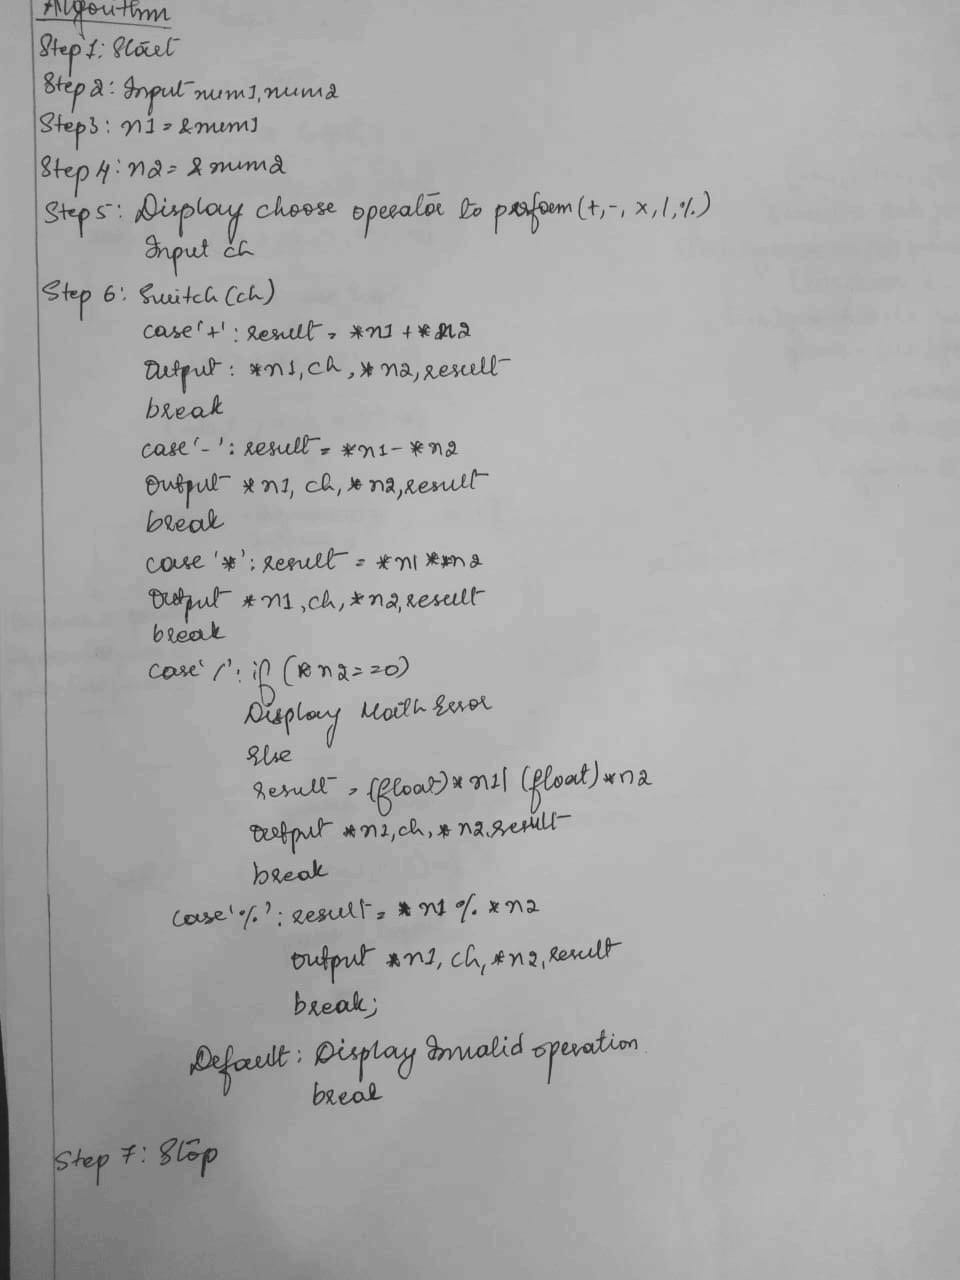 Algorithm
Step 1: Start
Step 2: Input num1, num2
Step3: n1 = &num1
Step 4: n2 = & num2
Step 5: Display choose operator to perform (+, -, x, /, %)
Input ch
Step 6: Switch (ch)
case '+': result = *n1 + * n2
Output: *n1, ch, * n2, result
break
case '-': result = *n1 - *n2
Output * n1, ch, * n2, result
break
case '*': result = *n1 **n2
Output *n1, ch, *n2, result
break
case '/': if (*n2==0)
Display Math Error
Else
result = (float)* n1/ (float)*n2
output *n1, ch, * n2, result
break
case '%': result = * n1 % *n2
output *n1, ch, *n2, result
break;
Default: Display Invalid operation
break
Step 7: Stop